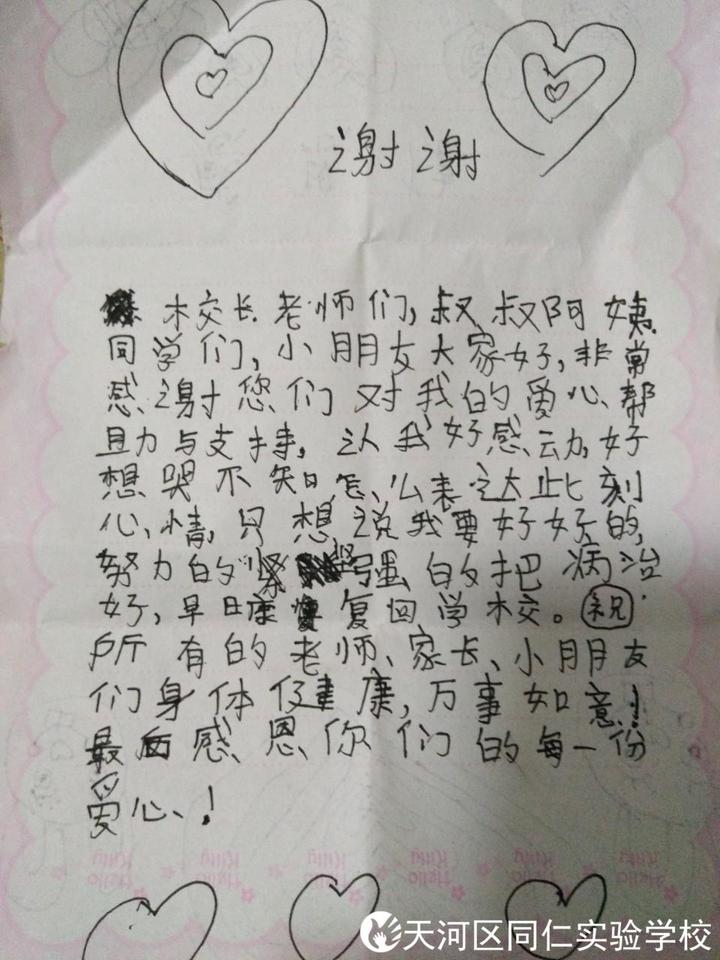 谢谢
校长老师们,叔叔阿姨
同学们,小朋友大家好,非常
感谢您们对我的爱心、帮
助与支持,让我好感动,好
想哭不知怎么表达此刻
心情,只想说我要好好的,
努力的坚强的把病治
好,早日康复回学校。祝
所有的老师、家长、小朋友
们身体健康,万事如意!
最后感恩你们的每一份
爱心、!
Hello Kitty Hello Kitty Hello Kitty Hello Kitty Hello Kitty
天河区同仁实验学校